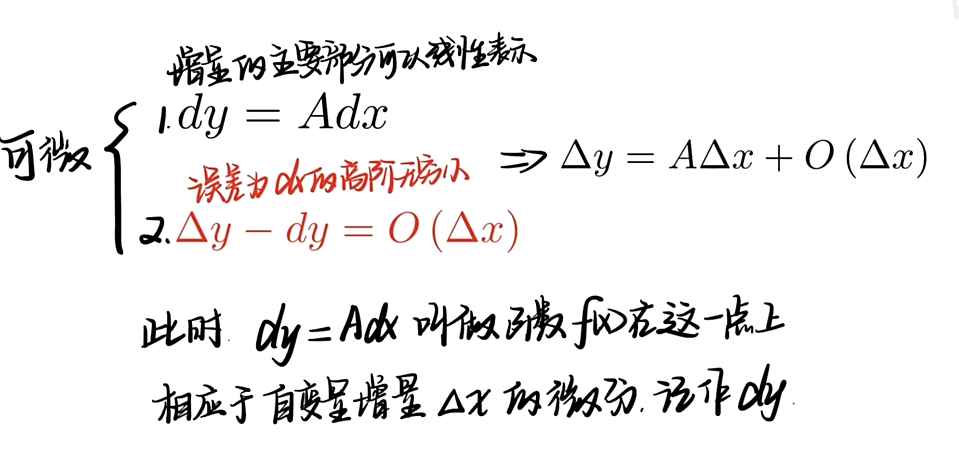 增量的主要部分可以线性表示
1. dy = Adx
可微
误差为dx的高阶无穷小
⇒ Δy = AΔx + O (Δx)
2. Δy − dy = O (Δx)
此时 dy = Adx 叫做函数 f(x)在这一点上
相应于自变量增量 Δx 的微分. 记作 dy.